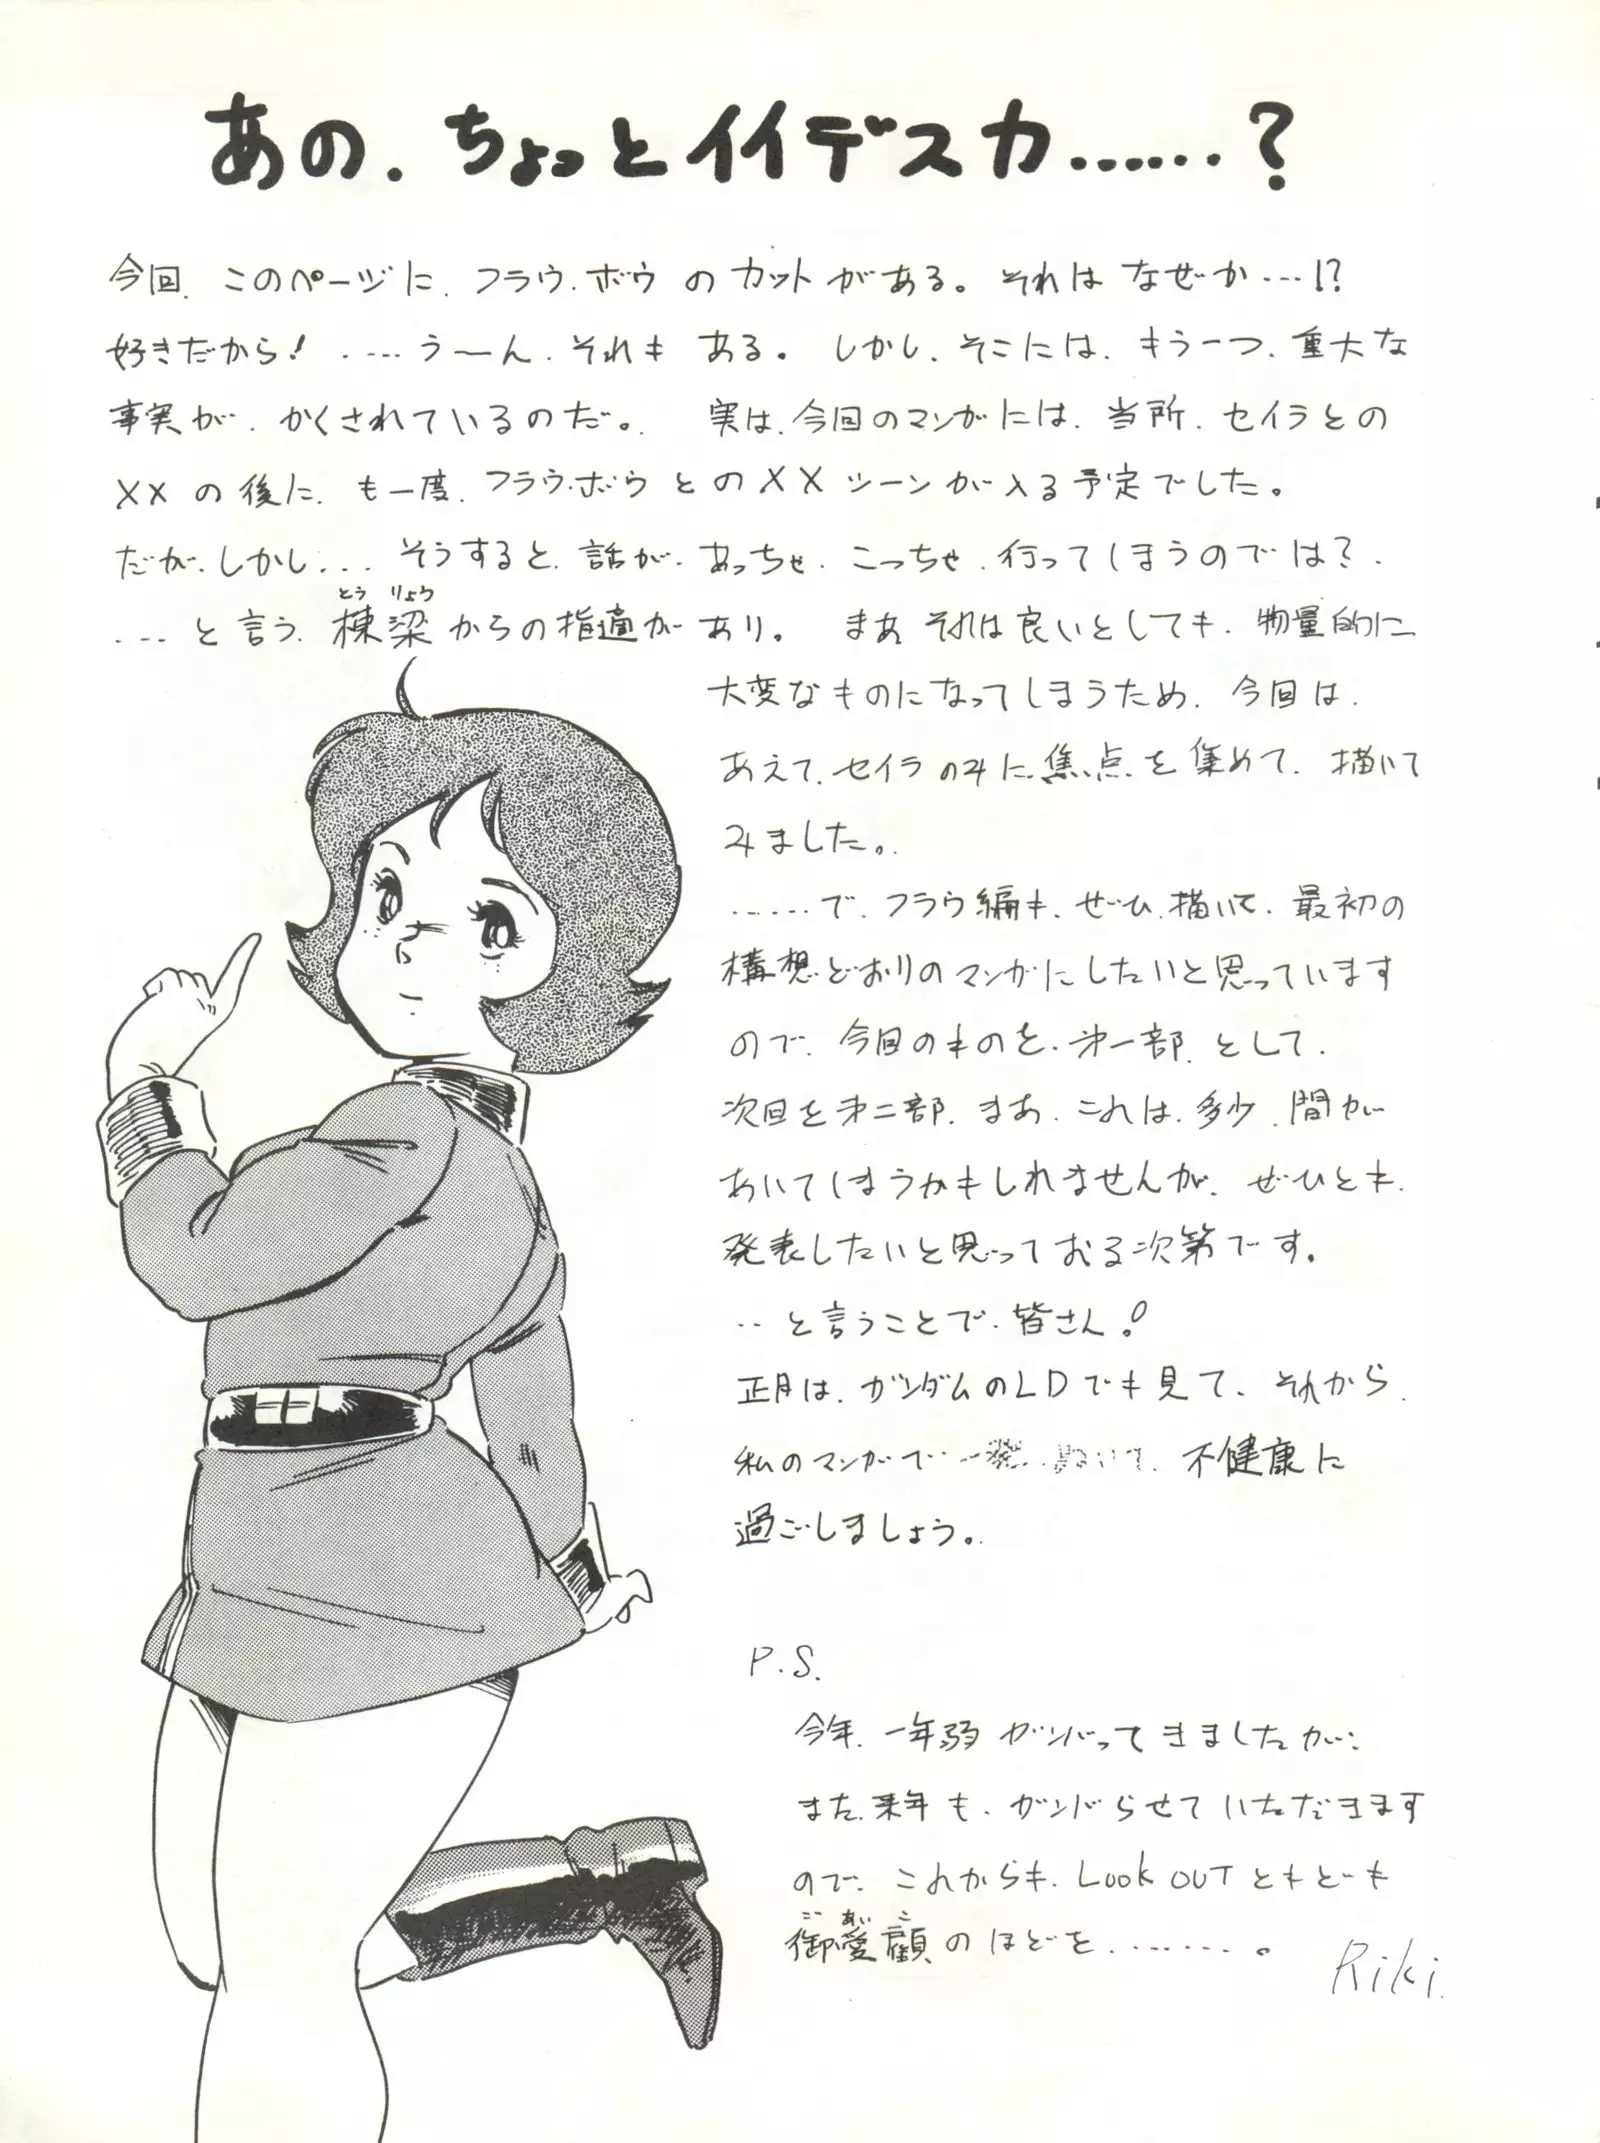 あの、ちょっとイイデスカ……？
今回、このページに、フラウ・ボウのカットがある。それはなぜか…!?
好きだから！……う〜ん、それもある。しかし、そこには、もう一つ、重大な
事実が、かくされているのだ。実は、今回のマンガには、当所、セイラとの
××の後に、も一度、フラウ・ボウとの××シーンが入る予定でした。
だが、しかし…そうすると、話が、あっちゃ、こっちゃ、行ってしまうのでは？
とうりょう
…と言う、棟梁からの指適があり。まあ、それは良いとしても、物量的に
大変なものになってしまうため、今回は、
あえて、セイラのみに焦点を集めて、描いて
みました。
……で、フラウ編も、ぜひ、描いて、最初の
構想どおりのマンガにしたいと思っています
ので、今回のものを、第一部、として、
次回を第二部、まあ、これは、多少、間が
あいてしまうかもしれませんが、ぜひとも、
発表したいと思っておる次第です。
‥と言うことで、皆さん！
正月は、ガンダムのLDでも見て、それから、
私のマンガで一発、ぬいて、不健康に
過ごしましょう。
P.S.
今年、一年弱ガンバってきましたが、
また、来年も、ガンバらせていただきます
ので、これからも、Look OUTともども
ごあいこ
御愛顧のほどを………。
Riki.